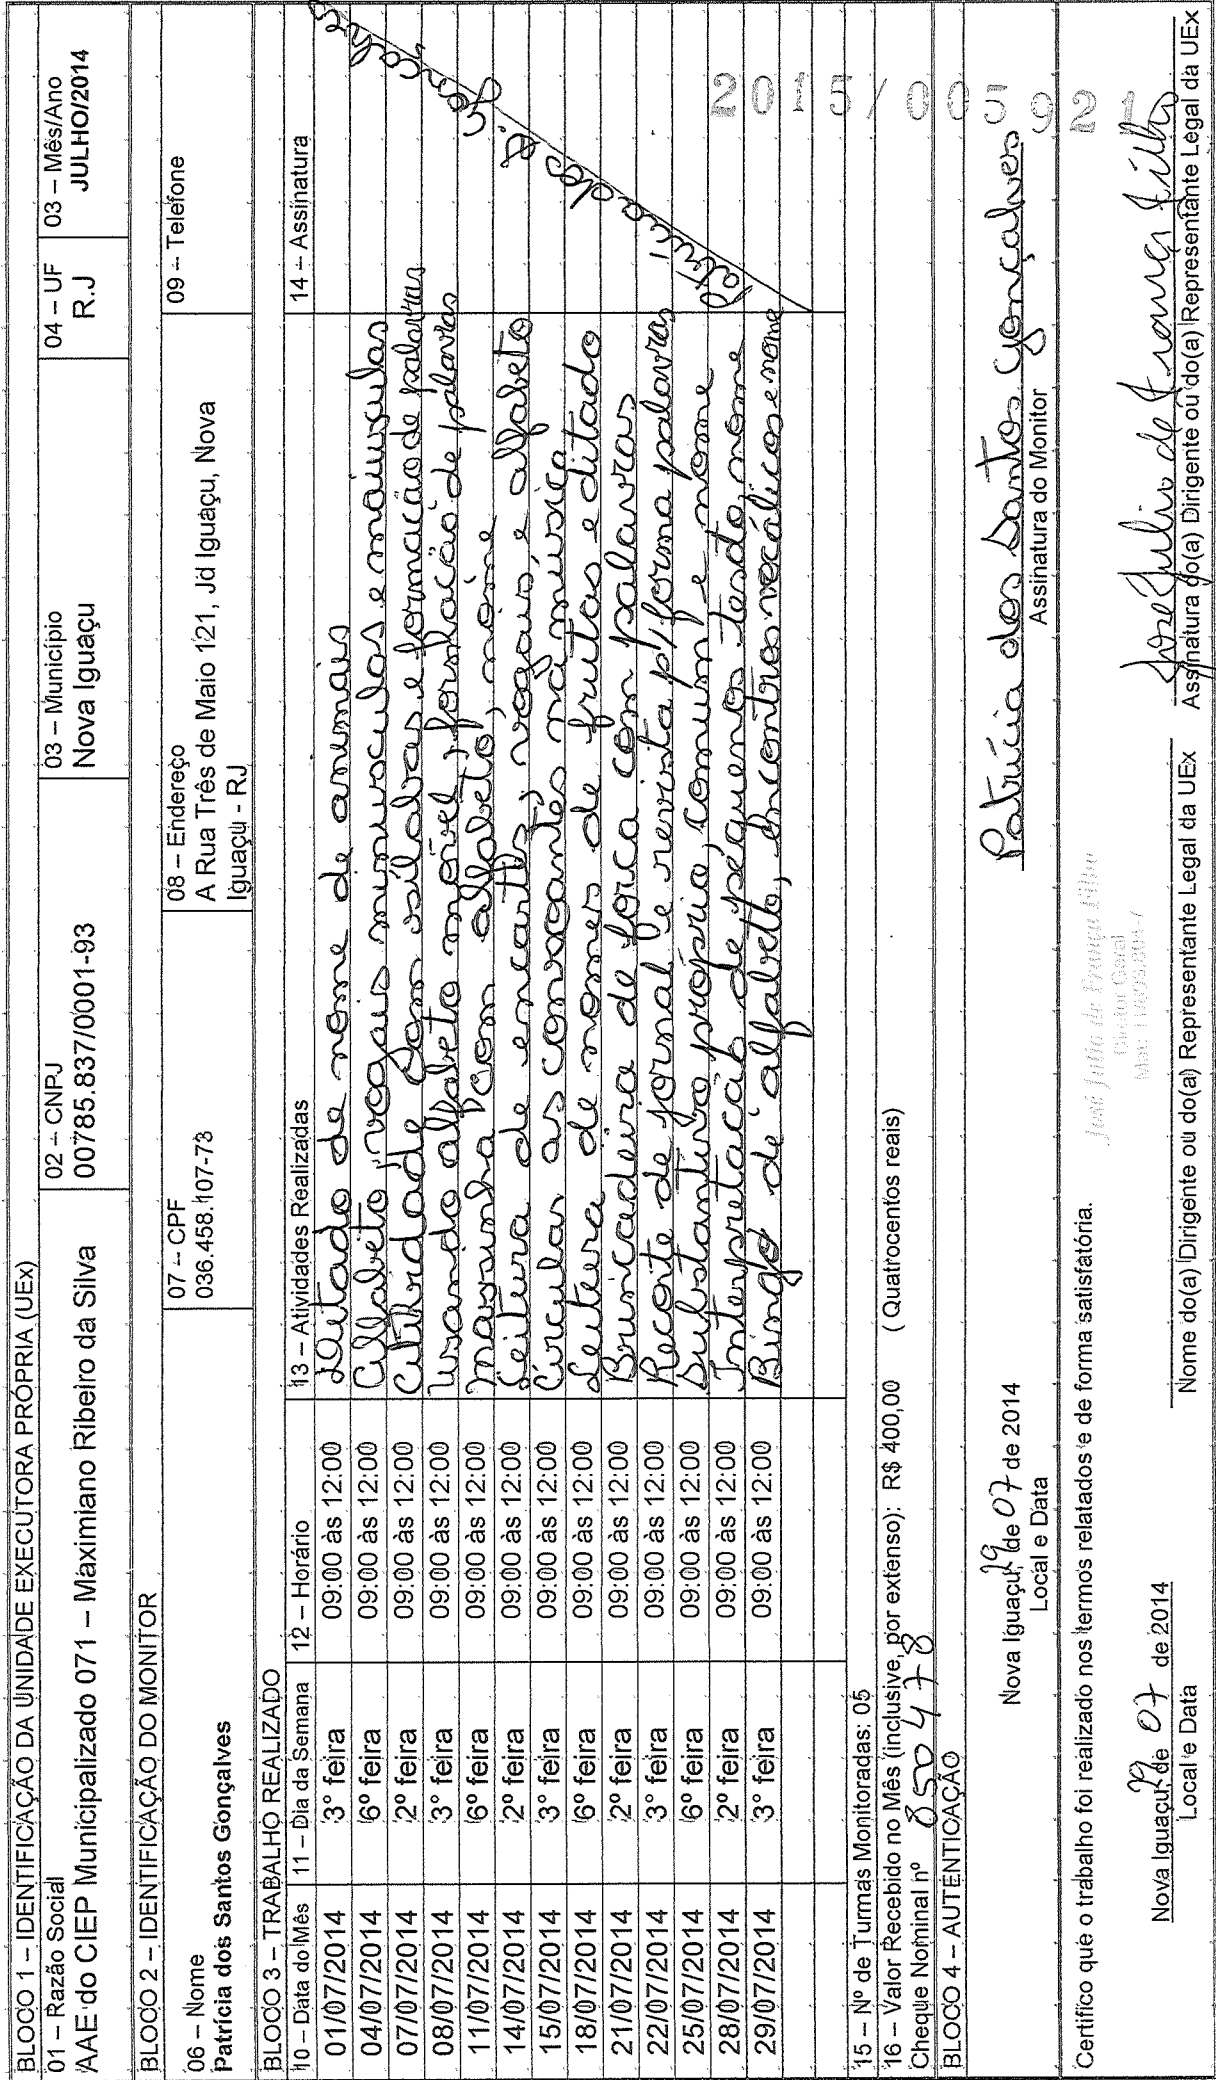 BLOCO 1 – IDENTIFICAÇÃO DA UNIDADE EXECUTORA PRÓPRIA (UEx)
01 – Razão Social
AAE do CIEP Municipalizado 071 – Maximiano Ribeiro da Silva
02 – CNPJ
00785.837/0001-93
03 – Município
Nova Iguaçu
04 – UF
R.J
03 – Mês/Ano
JULHO/2014
BLOCO 2 – IDENTIFICAÇÃO DO MONITOR
06 – Nome
Patrícia dos Santos Gonçalves
07 – CPF
036.458.107-73
08 – Endereço
A Rua Três de Maio 121, Jd Iguaçu, Nova
Iguaçu - RJ
09 – Telefone
BLOCO 3 – TRABALHO REALIZADO
10 – Data do Mês 11 – Dia da Semana 12 – Horário 13 – Atividades Realizadas 14 – Assinatura
01/07/2014 3° feira 09:00 às 12:00 Ditado de nome de animais
04/07/2014 6° feira 09:00 às 12:00 Alfabeto, vogais minusculas e maiusculas
07/07/2014 2° feira 09:00 às 12:00 Atividade com sílabas e formação de palavras
08/07/2014 3° feira 09:00 às 12:00 Usando alfabeto móvel, formação de palavras
11/07/2014 6° feira 09:00 às 12:00 Massinha com alfabeto, nome
14/07/2014 2° feira 09:00 às 12:00 Leitura de encartes, vogais e alfabeto
15/07/2014 3° feira 09:00 às 12:00 Circular as consoantes na música
18/07/2014 6° feira 09:00 às 12:00 Leitura de nomes de frutas e ditado
21/07/2014 2° feira 09:00 às 12:00 Brincadeira de forca com palavras
22/07/2014 3° feira 09:00 às 12:00 Recorte de jornal e revista p/ forma palavras
25/07/2014 6° feira 09:00 às 12:00 Substantivo próprio, comum e nome
28/07/2014 2° feira 09:00 às 12:00 Interpretação de pequenos texto, nome
29/07/2014 3° feira 09:00 às 12:00 Bingo de alfabeto, encontros vocálicos e nome
Patrícia dos S. Gonçalves
2015/005921
15 – Nº de Turmas Monitoradas: 05
16 – Valor Recebido no Mês (inclusive, por extenso): R$ 400,00 ( Quatrocentos reais)
Cheque Nominal nº 850478
BLOCO 4 – AUTENTICAÇÃO
Nova Iguaçu, 29 de 07 de 2014
Local e Data
Patrícia dos Santos Gonçalves
Assinatura do Monitor
Certifico que o trabalho foi realizado nos termos relatados e de forma satisfatória.
José Julio de França Filho
Diretor Geral
Nova Iguaçu, 29 de 07 de 2014
Local e Data
Nome do(a) Dirigente ou do(a) Representante Legal da UEx
José Julio de França Filho
Assinatura do(a) Dirigente ou do(a) Representante Legal da UEx